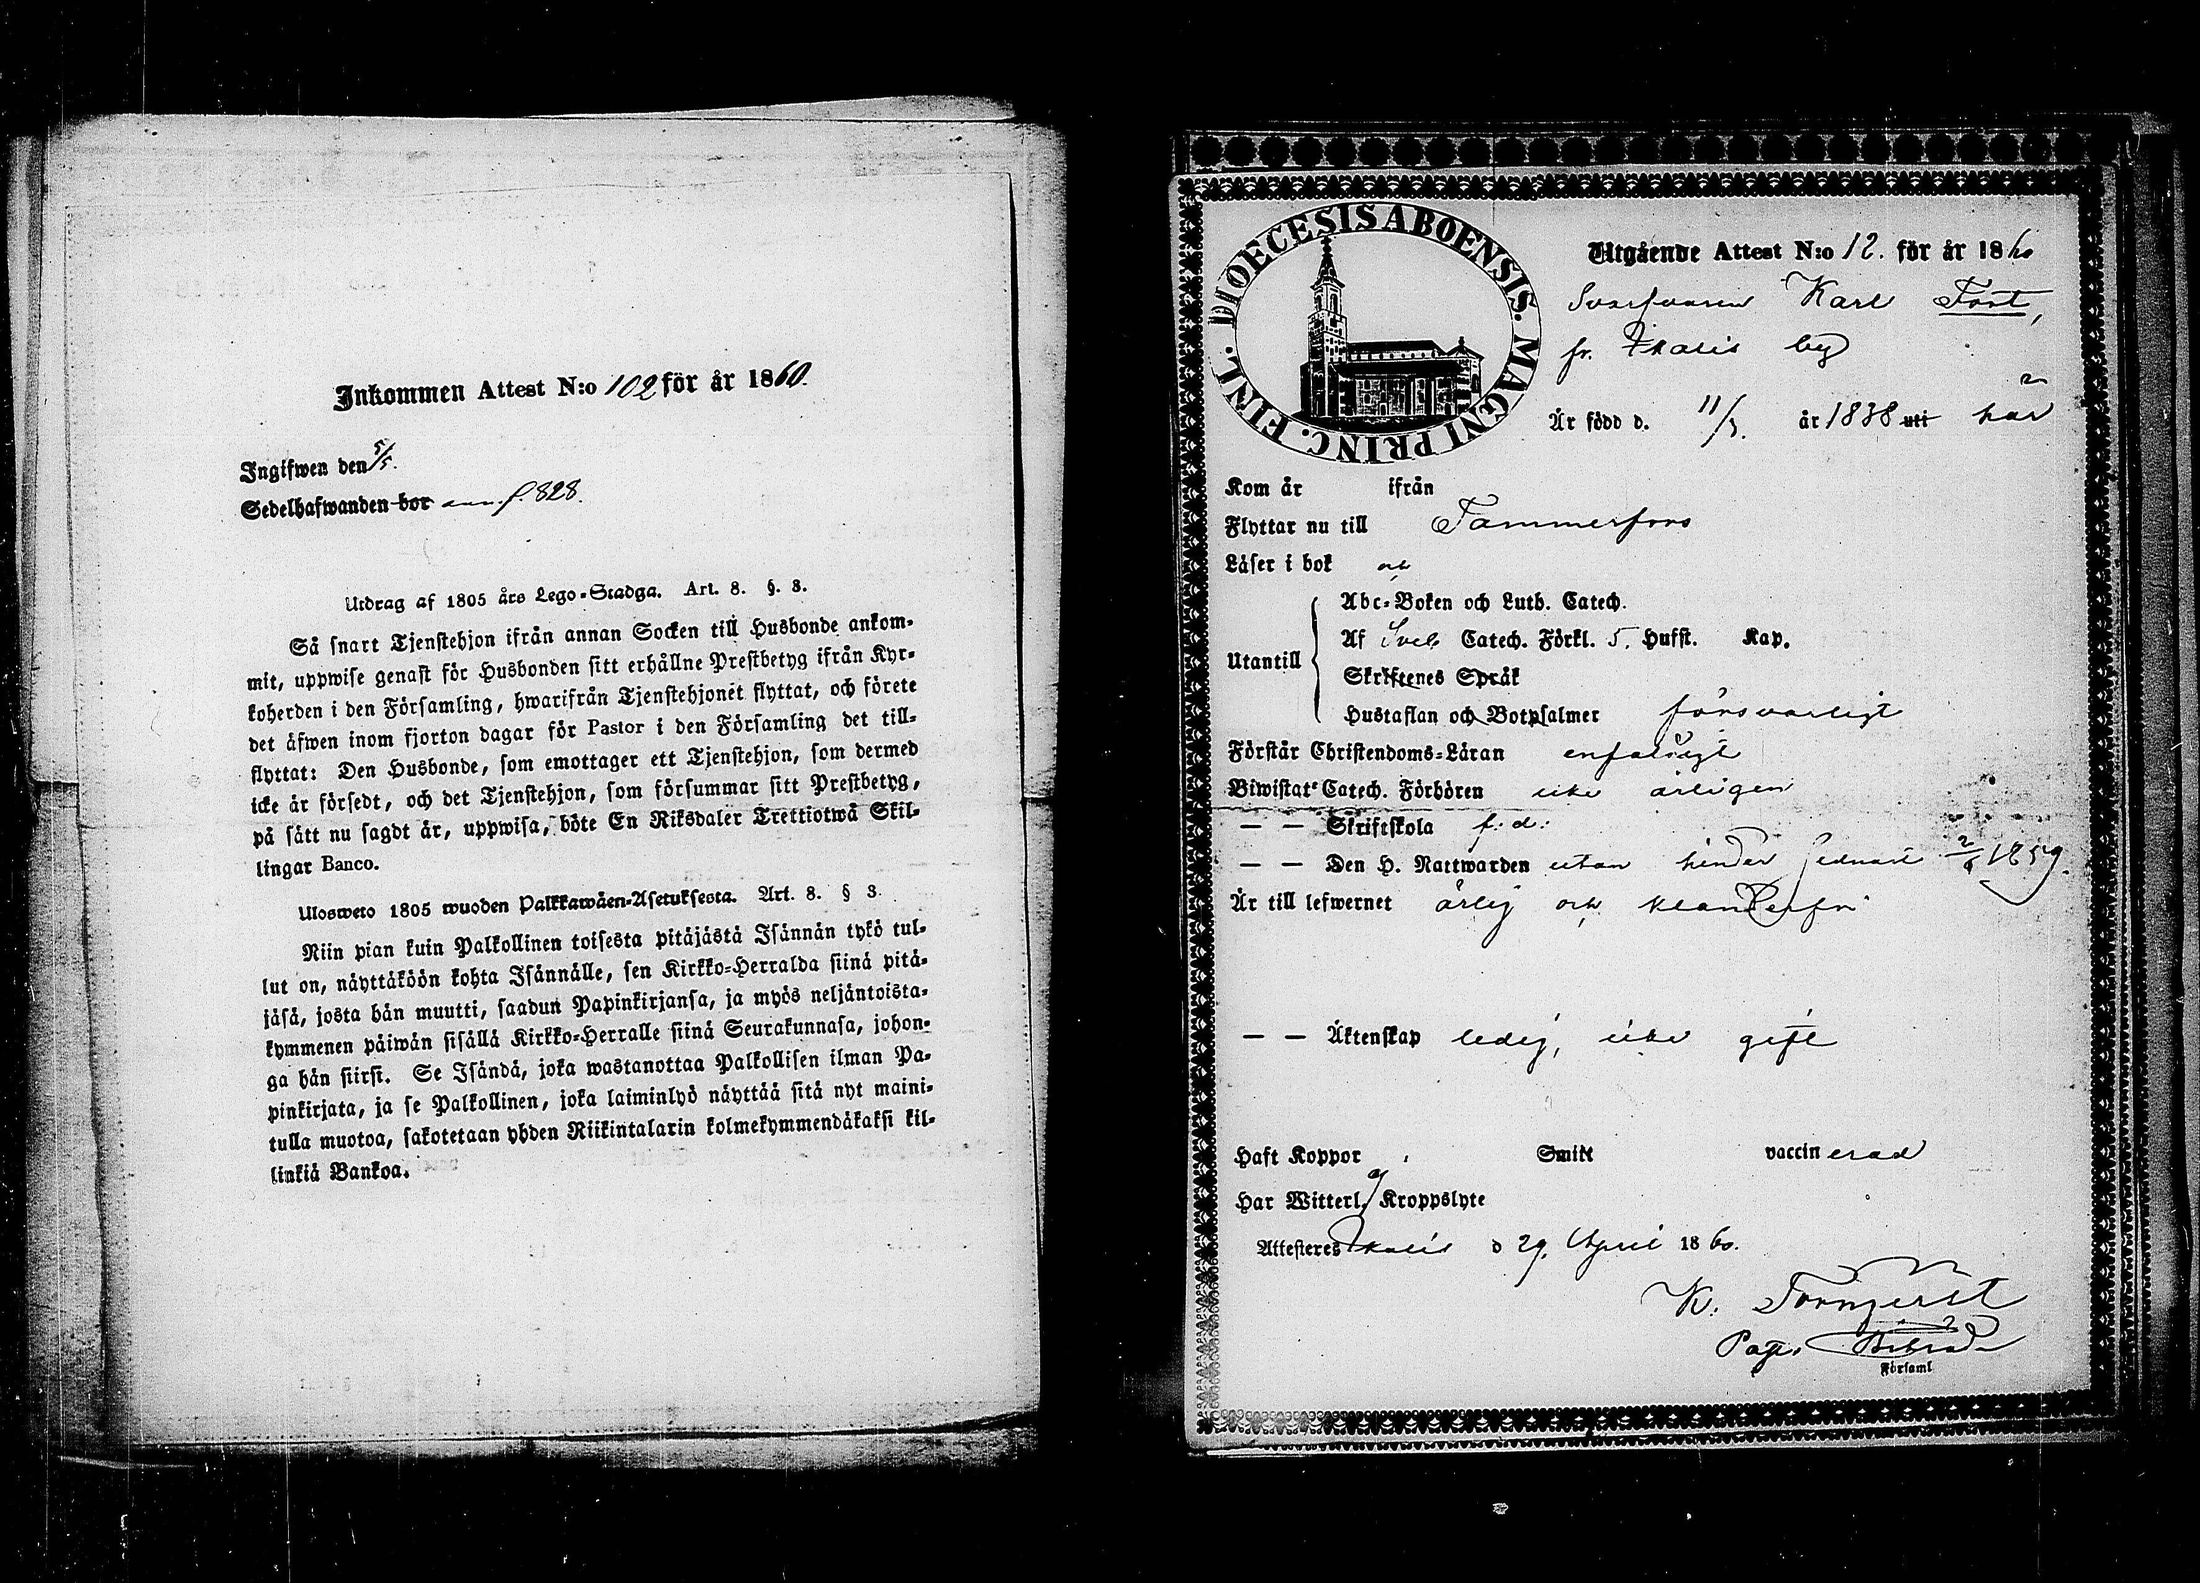 Inkommen Attest N:o 102 för år 1860.
Ingifwen den 5/5.
Sedelhafwanden bor ann. f. 828.
Utdrag af 1805 års Lego-Stadga. Art. 8. §. 3.
Så snart Tjenstehjon ifrån annan Socken till Husbonde ankom-
mit, uppwise genast för Husbonden sitt erhållne Prestbetyg ifrån Kyr-
koherden i den Församling, hwarifrån Tjenstehjonet flyttat, och förete
det äfwen inom fjorton dagar för Pastor i den Församling det till-
flyttat: Den Husbonde, som emottager ett Tjenstehjon, som dermed
icke är försedt, och det Tjenstehjon, som försummar sitt Prestbetyg,
på sätt nu sagdt är, uppwisa, böte En Riksdaler Trettiotwå Skil-
lingar Banco.
Ulosweto 1805 wuoden Palkkawäen-Asetuksesta. Art. 8. § 3.
Niin pian kuin Palkollinen toisesta pitäjästä Isännän tykö tul-
lut on, näyttäköön kohta Isännälle, sen Kirkko-Herralda siinä pitä-
jäsä, josta hän muutti, saadun Papinkirjansa, ja myös neljäntoista-
kymmenen päiwän sisällä Kirkko-Herralle siinä Seurakunnasa, johon-
ga hän siirsi. Se Isändä, joka wastanottaa Palkollisen ilman Pa-
pinkirjata, ja se Palkollinen, joka laiminlyö näyttää sitä nyt maini-
tulla muotoa, sakotetaan yhden Riikintalarin kolmekymmendäkaksi kil-
linkiä Bankoa.
DIOECESIS ABOENSIS. MAGNI PRINC. FINL.
Utgående Attest N:o 12. för år 1860
Svarfvaren Karl Fast,
fr. Ikalis by
Är född d. 11/3. år 1838 uti här
Kom år ifrån
Flyttar nu till Tammerfors
Läser i bok och
Utantill
Abc-Boken och Luth. Catech.
Af Sveb Catech. Förkl. 5. Hufst. Kap.
Skriftenes Språk
Hustaflan och Botpsalmer försvarligt
Förstår Christendoms-Läran enfaldigt
Biwistat Catech. Förhören icke årligen
— — Skriftskola f. d.
— — Den H. Nattwarden utan hinder sednast 2/6 1859.
Är till lefwernet ärlig och klanderfri
— — Äktenskap ledig, icke gift
Haft Koppor Smitt vaccinerad
Har Witterl. ej Kroppslyte
Attesteres Ikalis d 29. April 1860.
K.
Församl